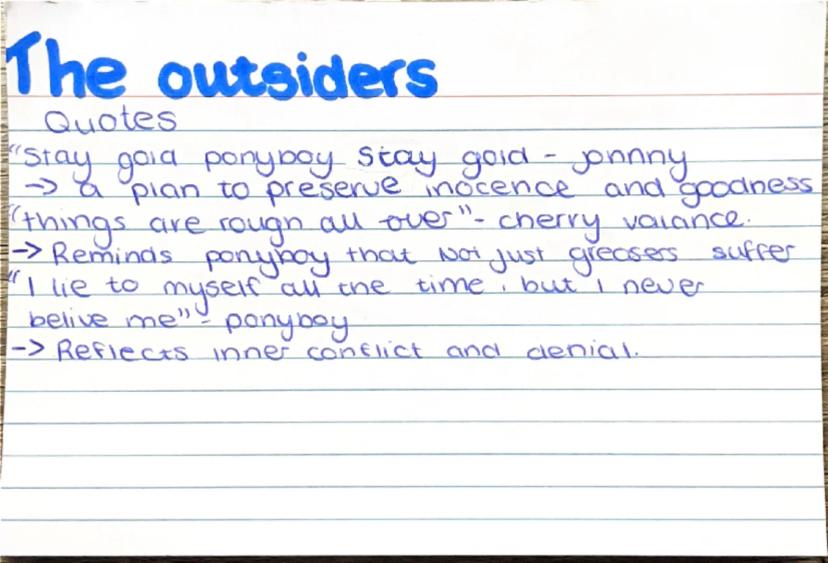 The outsiders
Quotes
"Stay gold ponyboy Stay gold - Johnny
-> a plan to preserve inocence and goodness
"things are rough all over" - cherry valance.
-> Reminds ponyboy that Not just greasers suffer
"I lie to myself all the time, but I never
belive me" - ponyboy
-> Reflects inner conflict and denial.